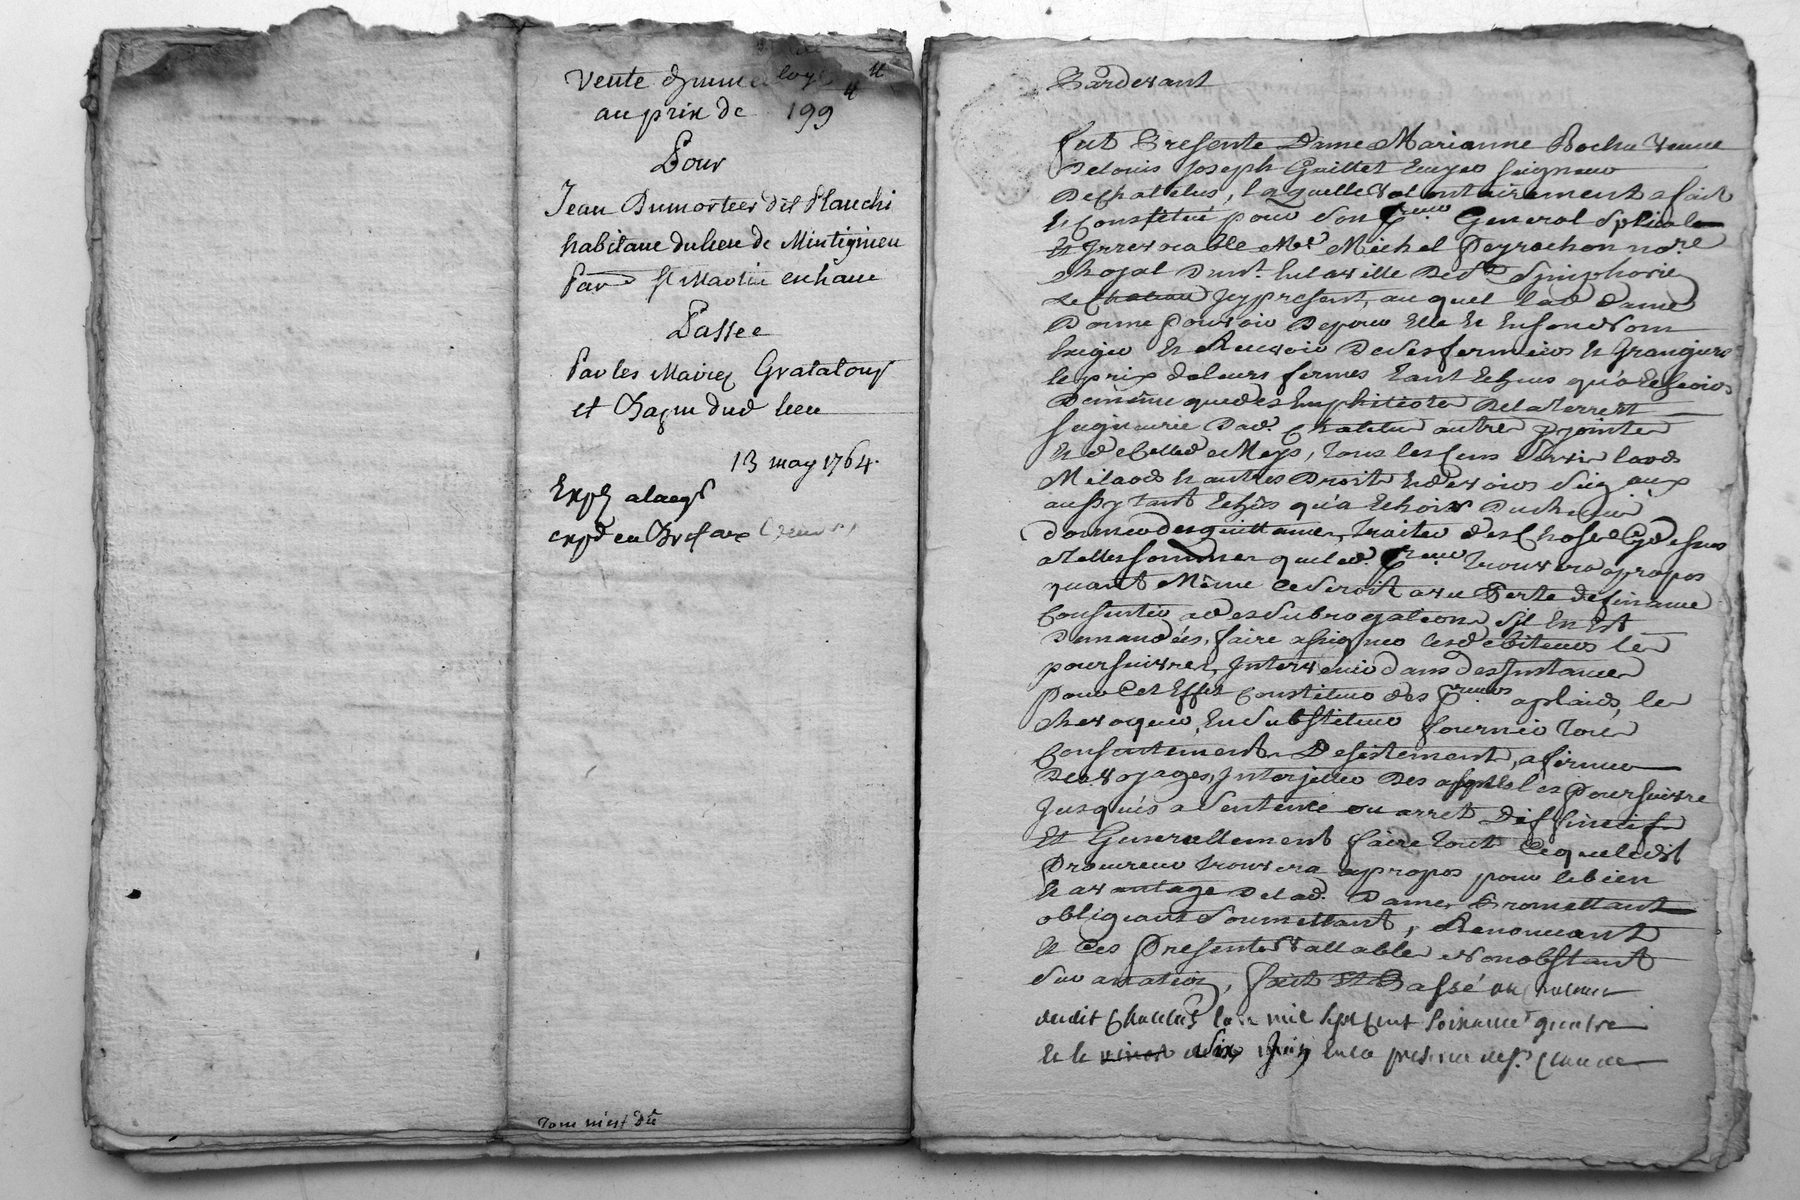 Vente d'une
au prix de 199 ᵗᵗ
Pour
Jean Dumortier dit Planchi
habitant du lieu de Mintignieu
Par St Martin en haut
Passée
Par les Mariez Grataloup
et dud lieu
13 may 1764.
Expd
expd en
Tout m'est Dû
Pardevant
fut Presente Dame Marianne Rochu veuve
De Louis Joseph Guillet Ecuyer Seigneur
De Chatelus, laquelle volontairement a fait
et Constitué pour son Preur General Special
et Jrrevocable Me Michel Peyrachon nore
Royal Dunt en la ville De St Simphorie
Le Chateau Jcy present, auquel lad Dame
Donne pouvoir De pour Elle et En son nom
Exiger et Recevoir De Ses fermiers et Grangiers
le prix de leurs fermes tant Echus qu'a Echeoir
De même que des Emphiteotes De la Terre et
Seigneurie Dud. Chatelus autres y jointes
et de Celle de Meys, Tous les Cens Servis laods
Milaods et autres Droits et Devoirs Seigaux
aussy tant Echus qu'a Echoir Du
donner des quittances, traiter des Choses Cy dessus
a telles sommes que led. Preur trouvera apropos
quant Même Ce Seroit avec Perte de finance
Consentir a des Subrogations S'il En Est
Demandées, faire assigner les debiteurs les
poursuivre, Jntervenir dans des Jnstances
pour Cet Effet Constituer des Preurs aplaids, les
Revoquer, En Substituer fournir Tous
Consentement, Desistement, afirmer
Des voyages, Jnterjetter Des appels les poursuivre
Jusqu'a Sentence ou arret Diffinitif
Et Generallement faire tout Ce que ledit
Procureur trouvera apropos pour le bien
et avantage De lad. Dame, Promettant
obligeant Soumettant, Renoncant
et Ces Presentes vallables Nonobstant
Surannation, fait Et Passé au Chateau
dudit Chatelus l'an mil Sept Cent Soixante quatre
et le dix Juin En la presence de Sr. Claude